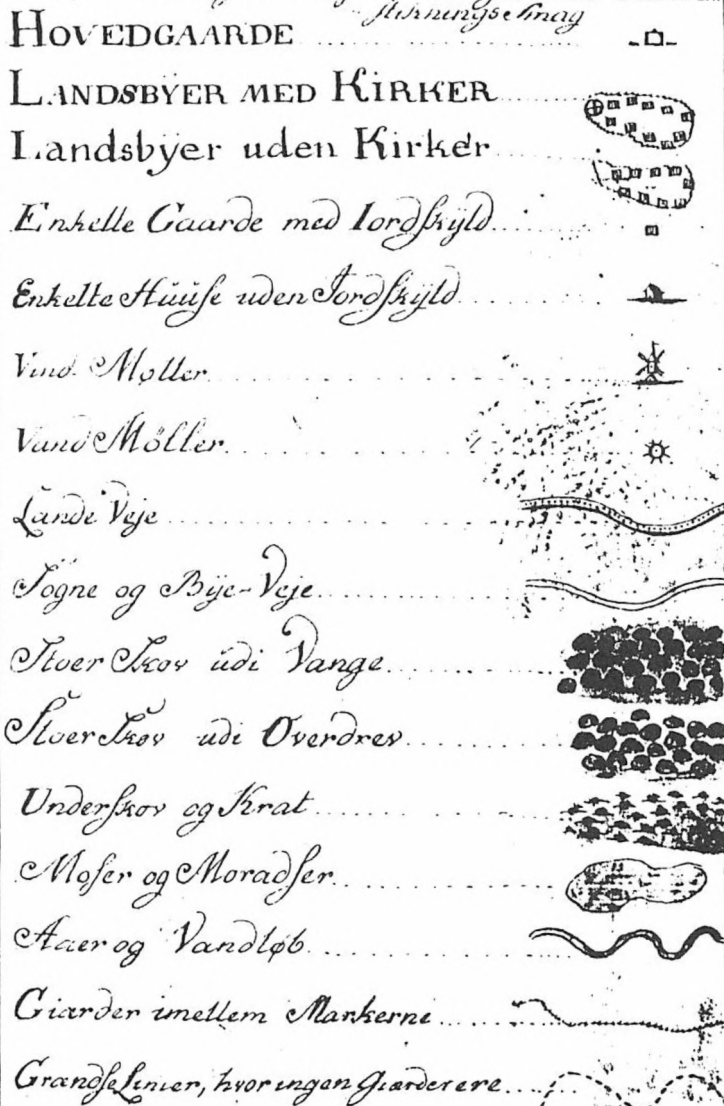 HOVEDGAARDE
LANDSBYER MED KIRKER
Landsbyer uden Kirker
Enkelte Gaarde med Iordskyld
Enkelte Huuse uden Jordskyld
Vind Møller
Vand Möller
Lande Veje
Sogne og Bÿe-Veje
Stoer Skov udi Vange
Stoer Skov udi Overdrev
Underskov og Krat
Moser og Moradser
Aaer og Vandløb
Giærder imellem Markerne
GrændseLinier, hvor ingen Giærder ere